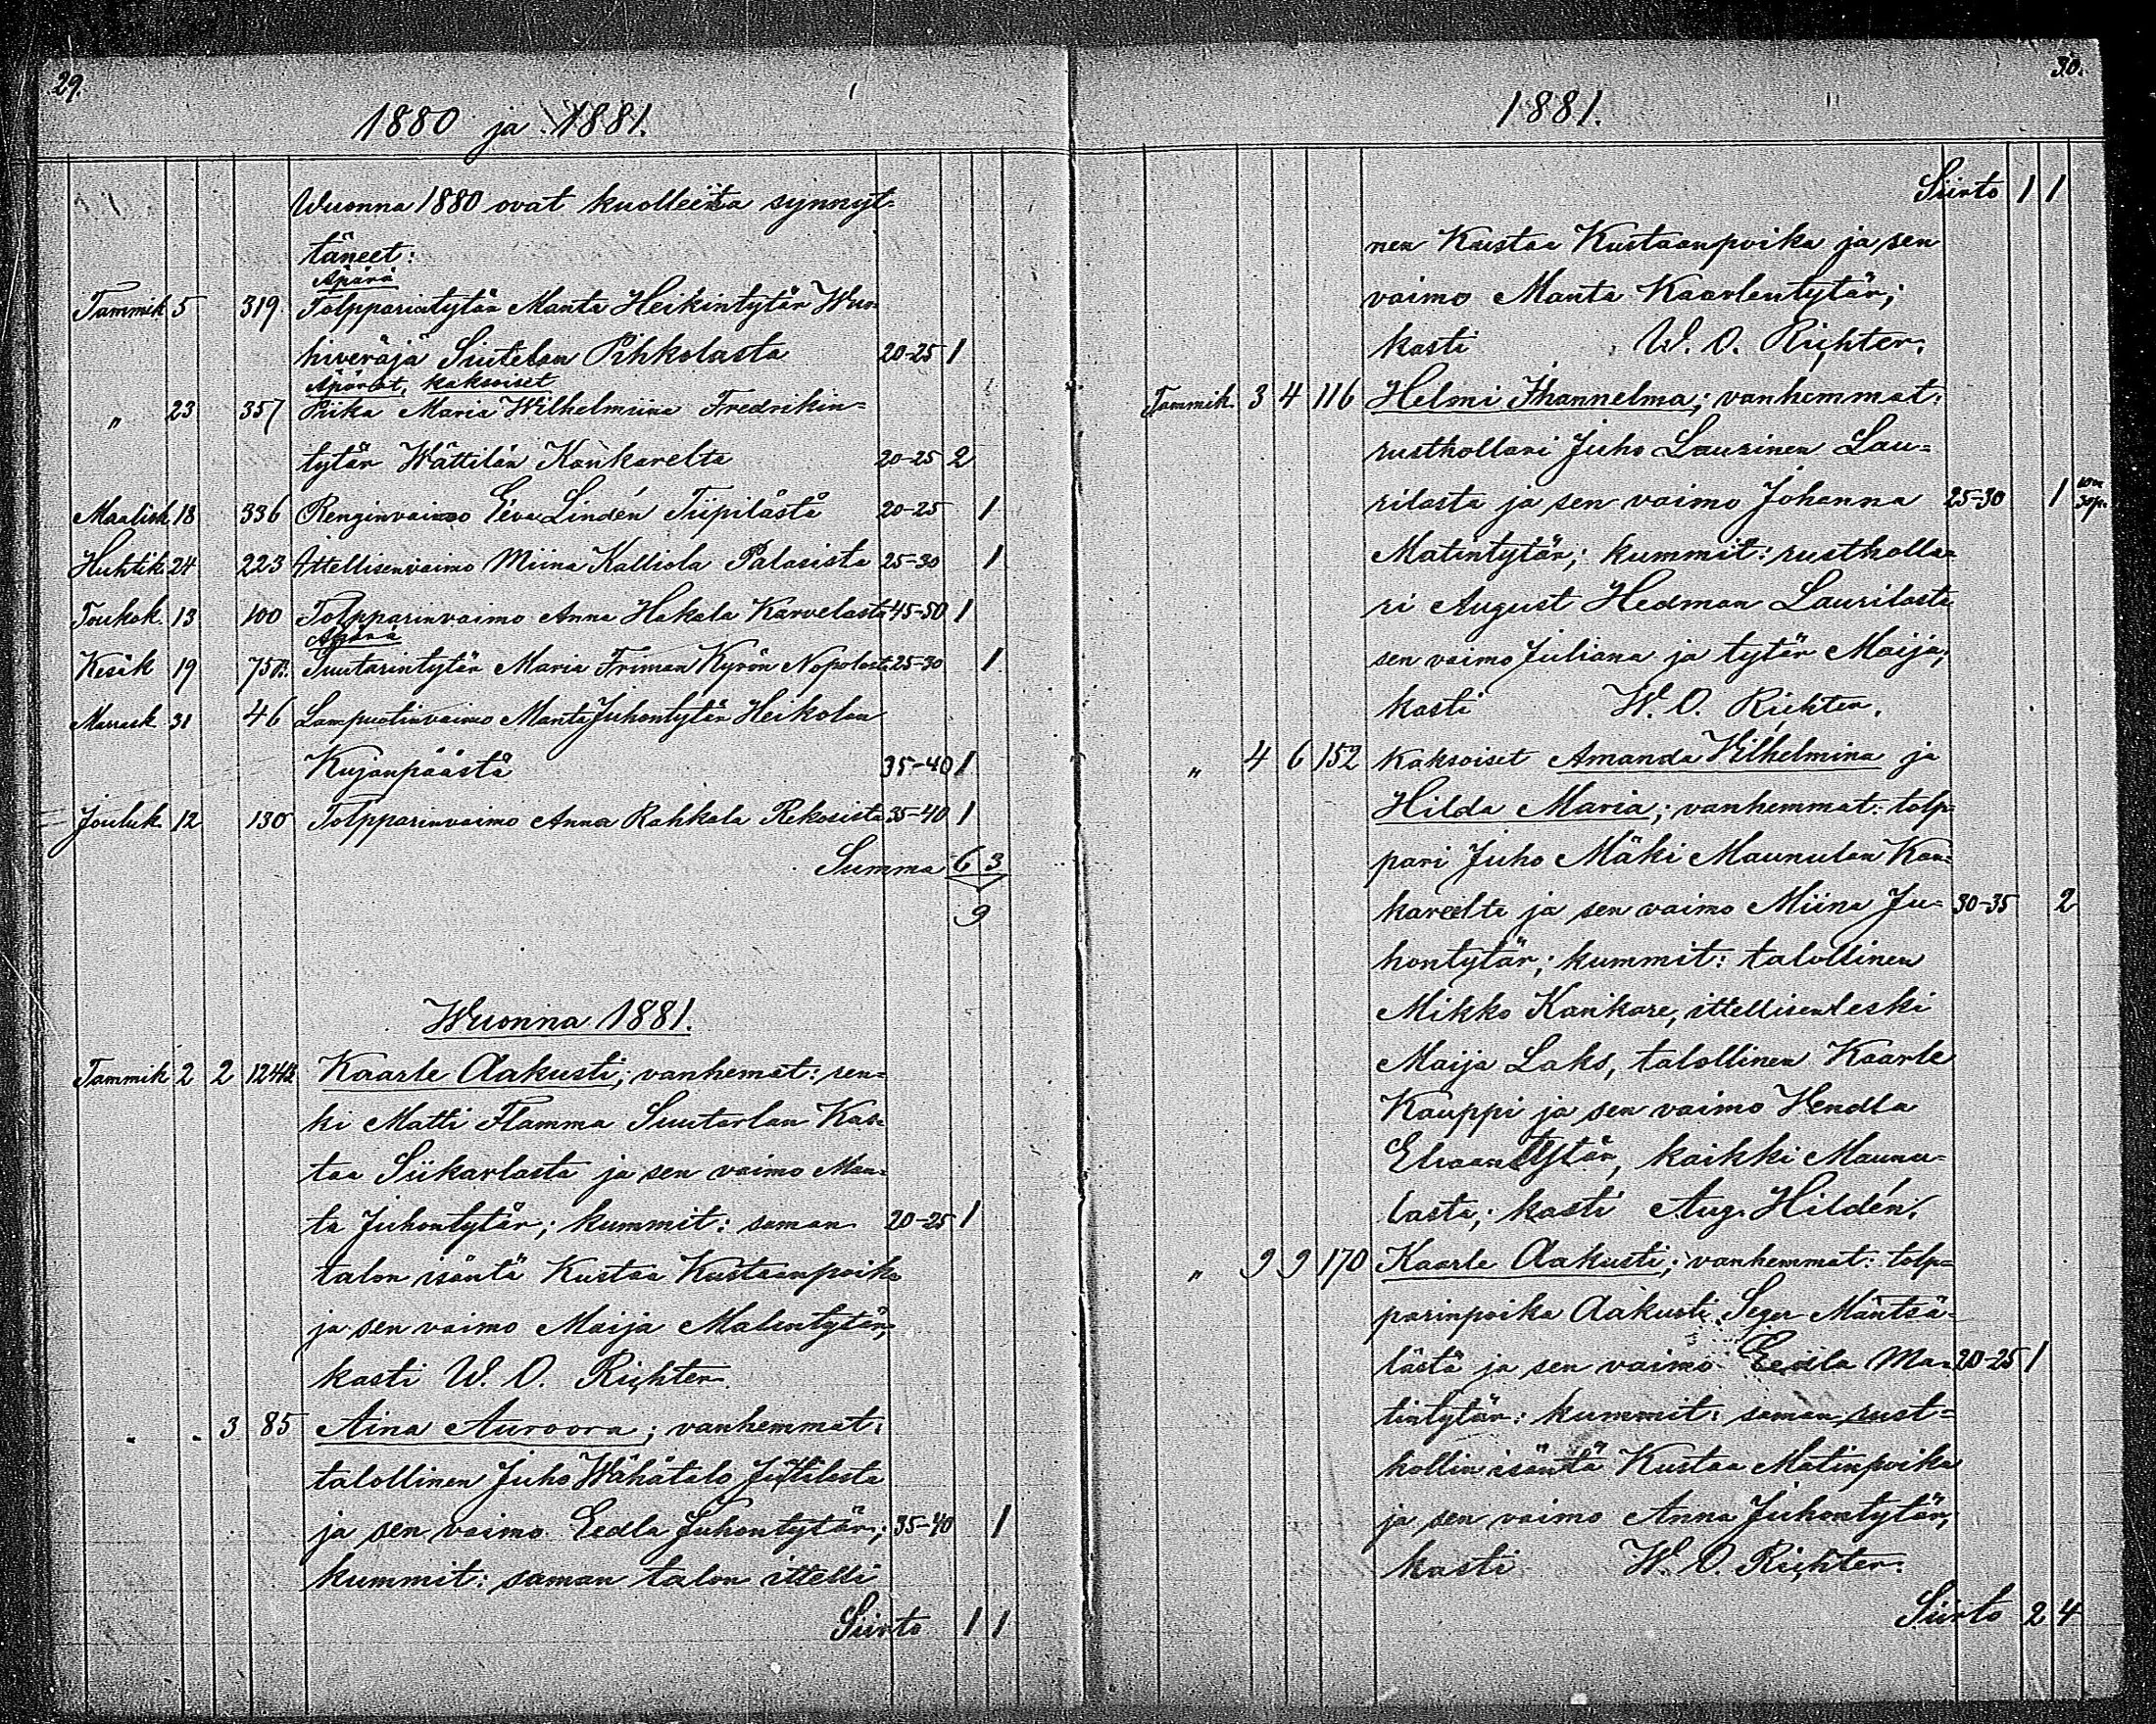 29.
1880 ja 1881.
Wuonna 1880 ovat kuolleita synnyt-
täneet:
Äpärä
Tammik 5 319. Tolpparintytär Manta Heikintytär Wuo-
hiveräjä Siutelan Pihkolasta 20-25 1
Äpärät, kaksoiset
„ 23 357 Piika Maria Wilhelmiina Fredrikin-
tytär Wättilän Kankarelta 20-25 2
Maalisk 18 336 Renginvaimo Eeva Lindén Tiipilästä 20-25 1
Huhtik. 24 223 Ittellisenvaimo Miina Kalliola Palasista 25-30 1
Toukok. 13 100 Tolpparinvaimo Anna Hakala Karvelasta 45-50 1
Äpärä
Kesäk 19 75 Suutarintytär Maria Friman Kyrön Nopolasta 25-30 1
Marrask 31 46 Lampuotinvaimo Manta Juhontytär Heikolan
Kujanpäästä 35-40 1
Jouluk. 12 130 Tolpparinvaimo Anna Rahkala Rekosista 35-40 1
Summa 6 3
9
Wuonna 1881.
Tammik 2 2 124 Kaarle Aakusti; vanhemat: ren-
ki Matti Flamma Suutarlan Kas-
taa Siikarlasta ja sen vaimo Man-
ta Juhontytär; kummit: saman 20-25 1
talon isäntä Kustaa Kustaanpoika
ja sen vaimo Maija Matintytär;
kasti W. O. Richter.
„ „ 3 85 Aina Auroora; vanhemmat:
talollinen Juho Wähätalo Juttilasta
ja sen vaimo Eedla Juhontytär; 35-40 1
kummit: saman talon ittelli
Siirto 1 1
30.
1881.
Siirto 1 1
nen Kustaa Kustaanpoika ja sen
vaimo Manta Kaarlentytär;
kasti W. O. Richter.
Tammik. 3 4 116 Helmi Jhannelma; vanhemmat:
rusthollari Juho Laurinen Lau-
rilasta ja sen vaimo Johanna 25-30 1
Matintytär; kummit: rustholla-
ri August Hedman Laurilasta
sen vaimo Juliana ja tytär Maija;
kasti W. O. Richter.
„ 4 6 152 Kaksoiset Amanda Wilhelmina ja
Hilda Maria; vanhemmat: tolp-
pari Juho Mäki Maunulan Kan-
kareelta ja sen vaimo Miina Ju- 30-35 2
hontytär; kummit: talollinen
Mikko Kankare, ittellisenleski
Maija Laks, talollinen Kaarle
Kauppi ja sen vaimo Hendla
Eliaantytär, kaikki Maunu-
lasta; kasti Aug. Hildén.
„ 9 9 170 Kaarle Aakusti; vanhemmat: tolp-
parinpoika Aakusti Seger Mäntsä-
lästä ja sen vaimo Eedla Ma- 20-25 1
tintytär: kummit: saman rust-
hollin isäntä Kustaa Matinpoika
ja sen vaimo Anna Juhontytär;
kasti W. O. Richter.
Siirto 2 4